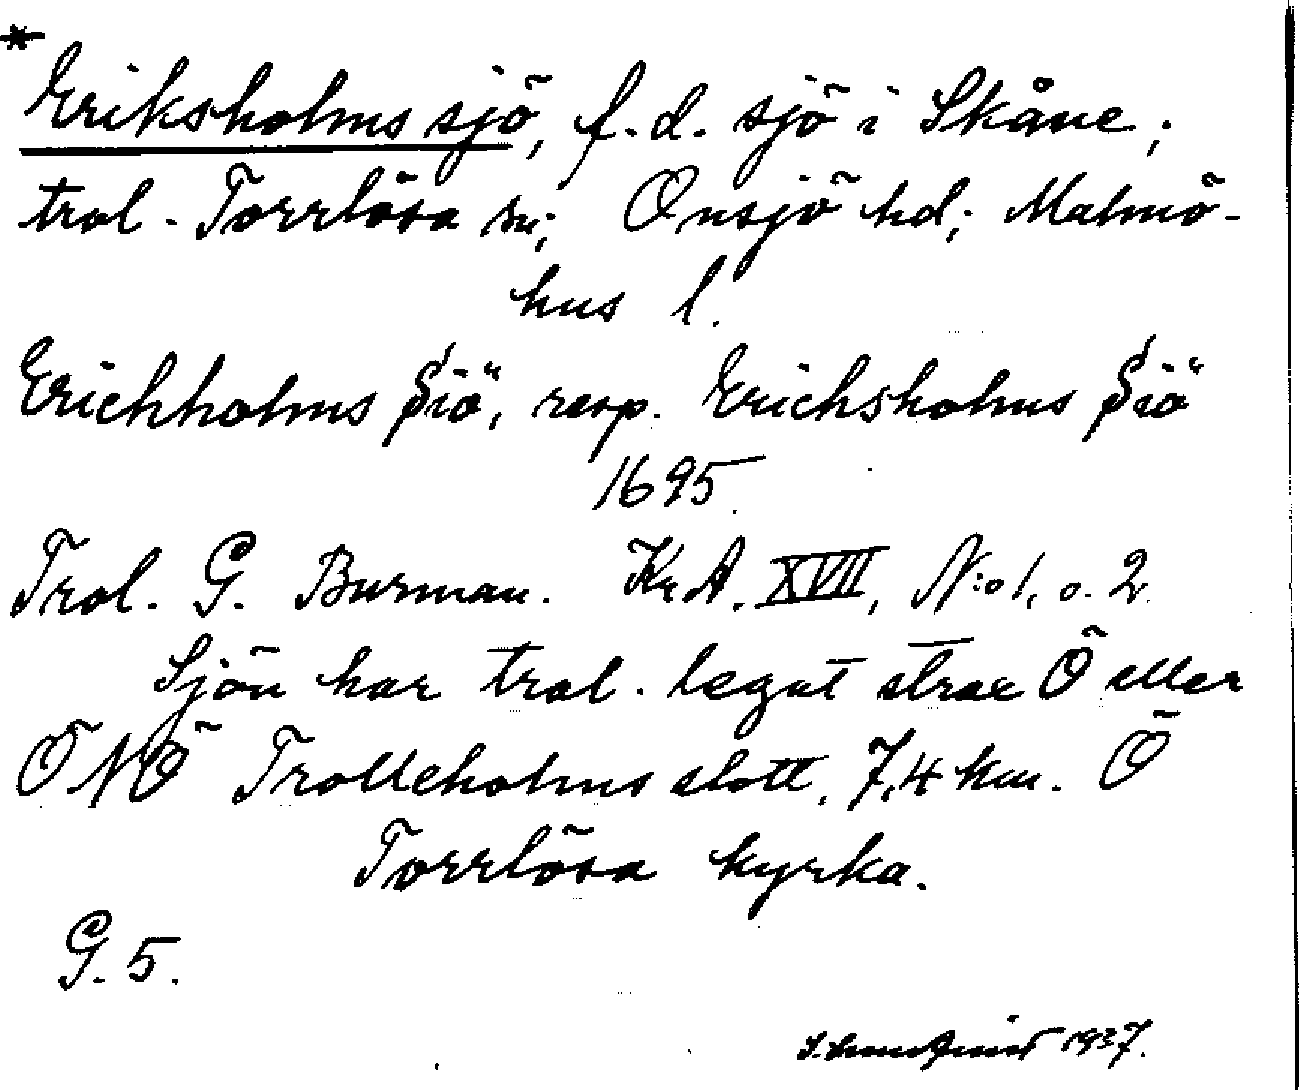 *
Eriksholms sjö, f.d. sjö i Skåne;
trol. Torrlösa sn; Onsjö hd; Malmö-
hus l.
Erichholms Siö, resp. Erichsholms Siö
1695.
Trol. G. Burman. Kr.A. XVII, N:o 1, o. 2
Sjön har trol. legat strax Ö eller
ÖNÖ Trolleholms slott, 7,4 km. Ö
Torrlösa kyrka.
G. 5.
1937.